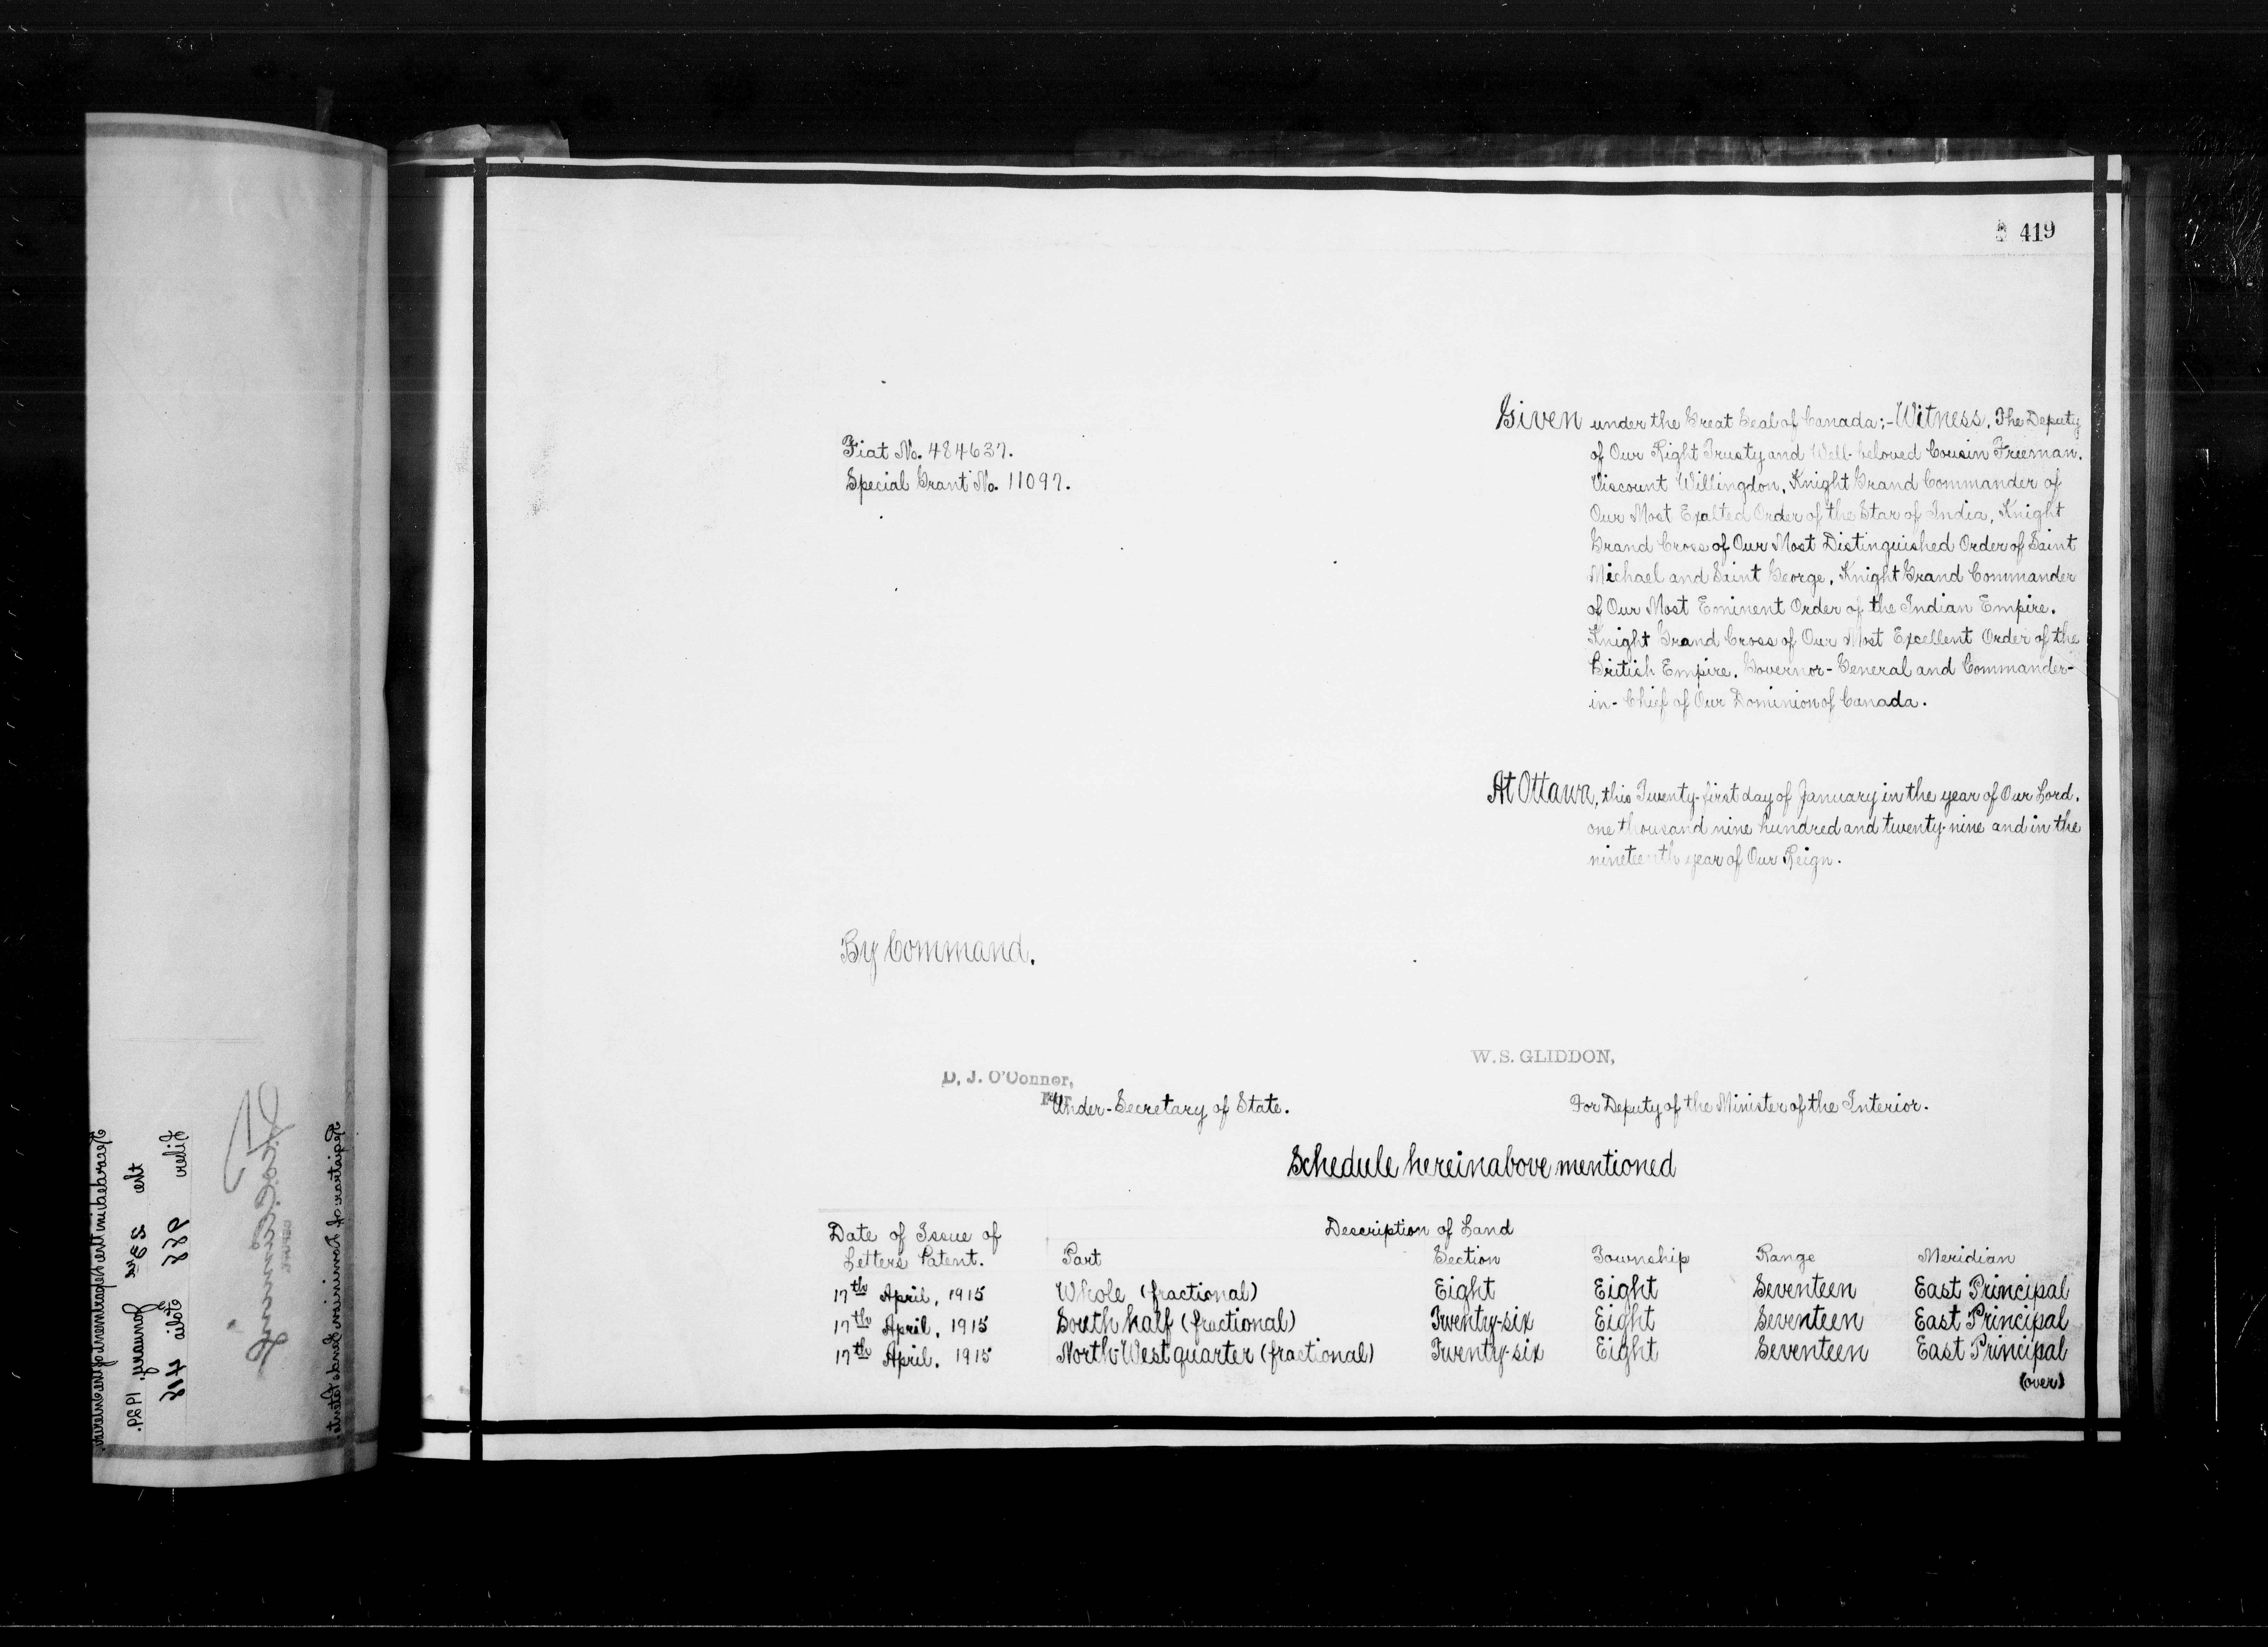 419
Fiat No. 484637.
Special Grant No. 11097.
Given under the Great Seal of Canada;-Witness, The Deputy
of Our Right Trusty and Well-beloved Cousin Freeman,
Viscount Willingdon, Knight Grand Commander of
Our Most Exalted Order of the Star of India, Knight
Grand Cross of Our Most Distinguished Order of Saint
Michael and Saint George, Knight Grand Commander
of Our Most Eminent Order of the Indian Empire,
Knight Grand Cross of Our Most Excellent Order of the
British Empire, Governor-General and Commander-
in-Chief of Our Dominion of Canada.
At Ottawa, this Twenty-first day of January in the year of Our Lord,
one thousand nine hundred and twenty-nine and in the
nineteenth year of Our Reign.
By Command,
W.S. GLIDDON,
D. J. O'Connor,
For
Under-Secretary of State.
For Deputy of the Minister of the Interior.
Schedule hereinabove mentioned
Date of Issue of Letters Patent.
Description of Land
Part Section Township Range Meridian
17th April, 1915 Whole (fractional) Eight Eight Seventeen East Principal
17th April, 1915 South half (fractional) Twenty-six Eight Seventeen East Principal
17th April, 1915 North-West quarter (fractional) Twenty-six Eight Seventeen East Principal
(over)
Recorded in the Department of the Interior
the 25th January, 1929.
Liber 988 Folio 418
Registrar of Dominion Lands Patents.